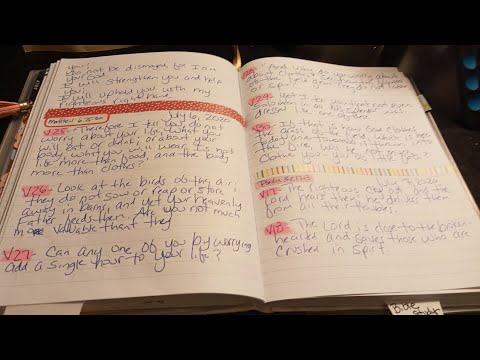 not be dismayed, for I am
your God
I will strengthen you and help
you I'll uphold you with my
righteous right hand
Matthew 6:25-30 July 6, 2020
V25: Therefore I tell you do not
worry about your life, what you
will eat or drink, or about your
body, what you will wear. Is not
life more than food, and the body
more than clothes?
V26: Look at the birds of the air;
they do not sow or reap or store
away in barns, and yet your heavenly
Father feeds them. Are you not much
more valuable than they
V27: Can any one of you by worrying
add a single hour to your life?
V28: And why do you worry
about clothes?
of the field grow. They do not labor
or spin
V29: Yet I tell you that not even
Solomon in all his
was dressed like one of these
V30: If that is how God clothes
the grass of the field
the fire, will he not
clothe you
Psalm 34:17-18 July 7, 2020
V17: The righteous cry out, and the
Lord hears them; he delivers them
from all their troubles.
V18: The Lord is close to the broken
hearted and saves those who are
crushed in spirit.
Bible
Study